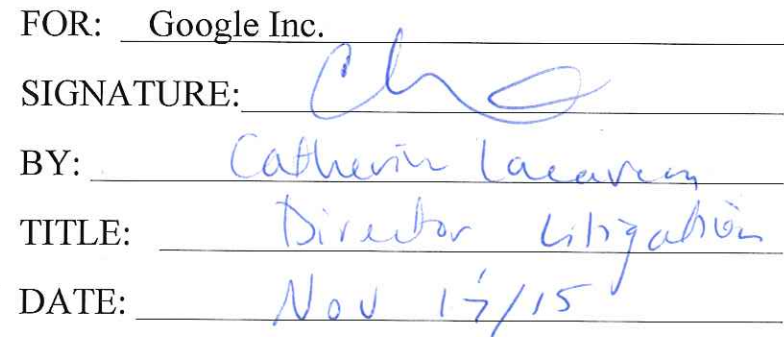 FOR: Google Inc.
SIGNATURE:
BY: Catherine Lacavera
TITLE: Director Litigation
DATE: Nov 17/15